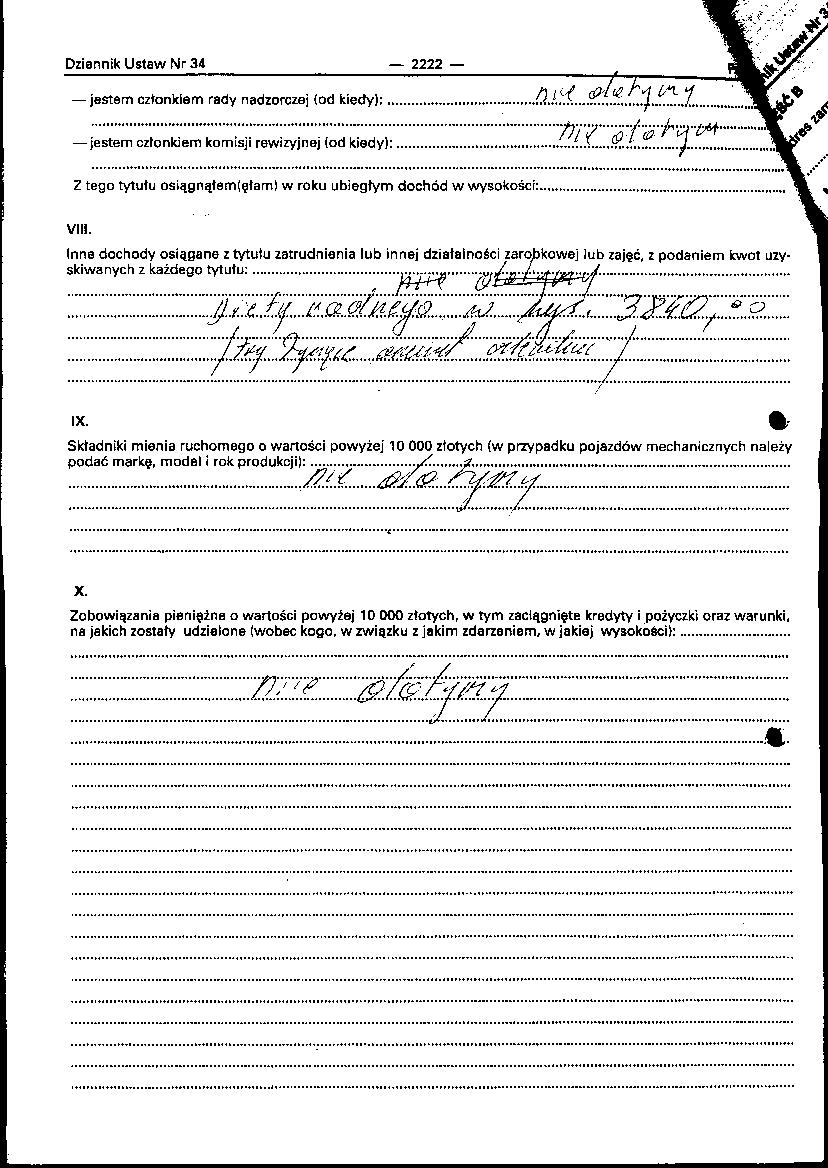 Dziennik Ustaw Nr 34 — 2222 —
— jestem członkiem rady nadzorczej (od kiedy): nie dotyczy
— jestem członkiem komisji rewizyjnej (od kiedy): nie dotyczy
Z tego tytułu osiągnąłem(ęłam) w roku ubiegłym dochód w wysokości:
VIII.
Inne dochody osiągane z tytułu zatrudnienia lub innej działalności zarobkowej lub zajęć, z podaniem kwot uzy-
skiwanych z każdego tytułu:
nie dotyczy
Diety radnego w wys. 3840,00
/trzy tysiące osiemset czterdzieści/
IX.
Składniki mienia ruchomego o wartości powyżej 10 000 złotych (w przypadku pojazdów mechanicznych należy
podać markę, model i rok produkcji):
nie dotyczy
X.
Zobowiązania pieniężne o wartości powyżej 10 000 złotych, w tym zaciągnięte kredyty i pożyczki oraz warunki,
na jakich zostały udzielone (wobec kogo, w związku z jakim zdarzeniem, w jakiej wysokości):
nie dotyczy